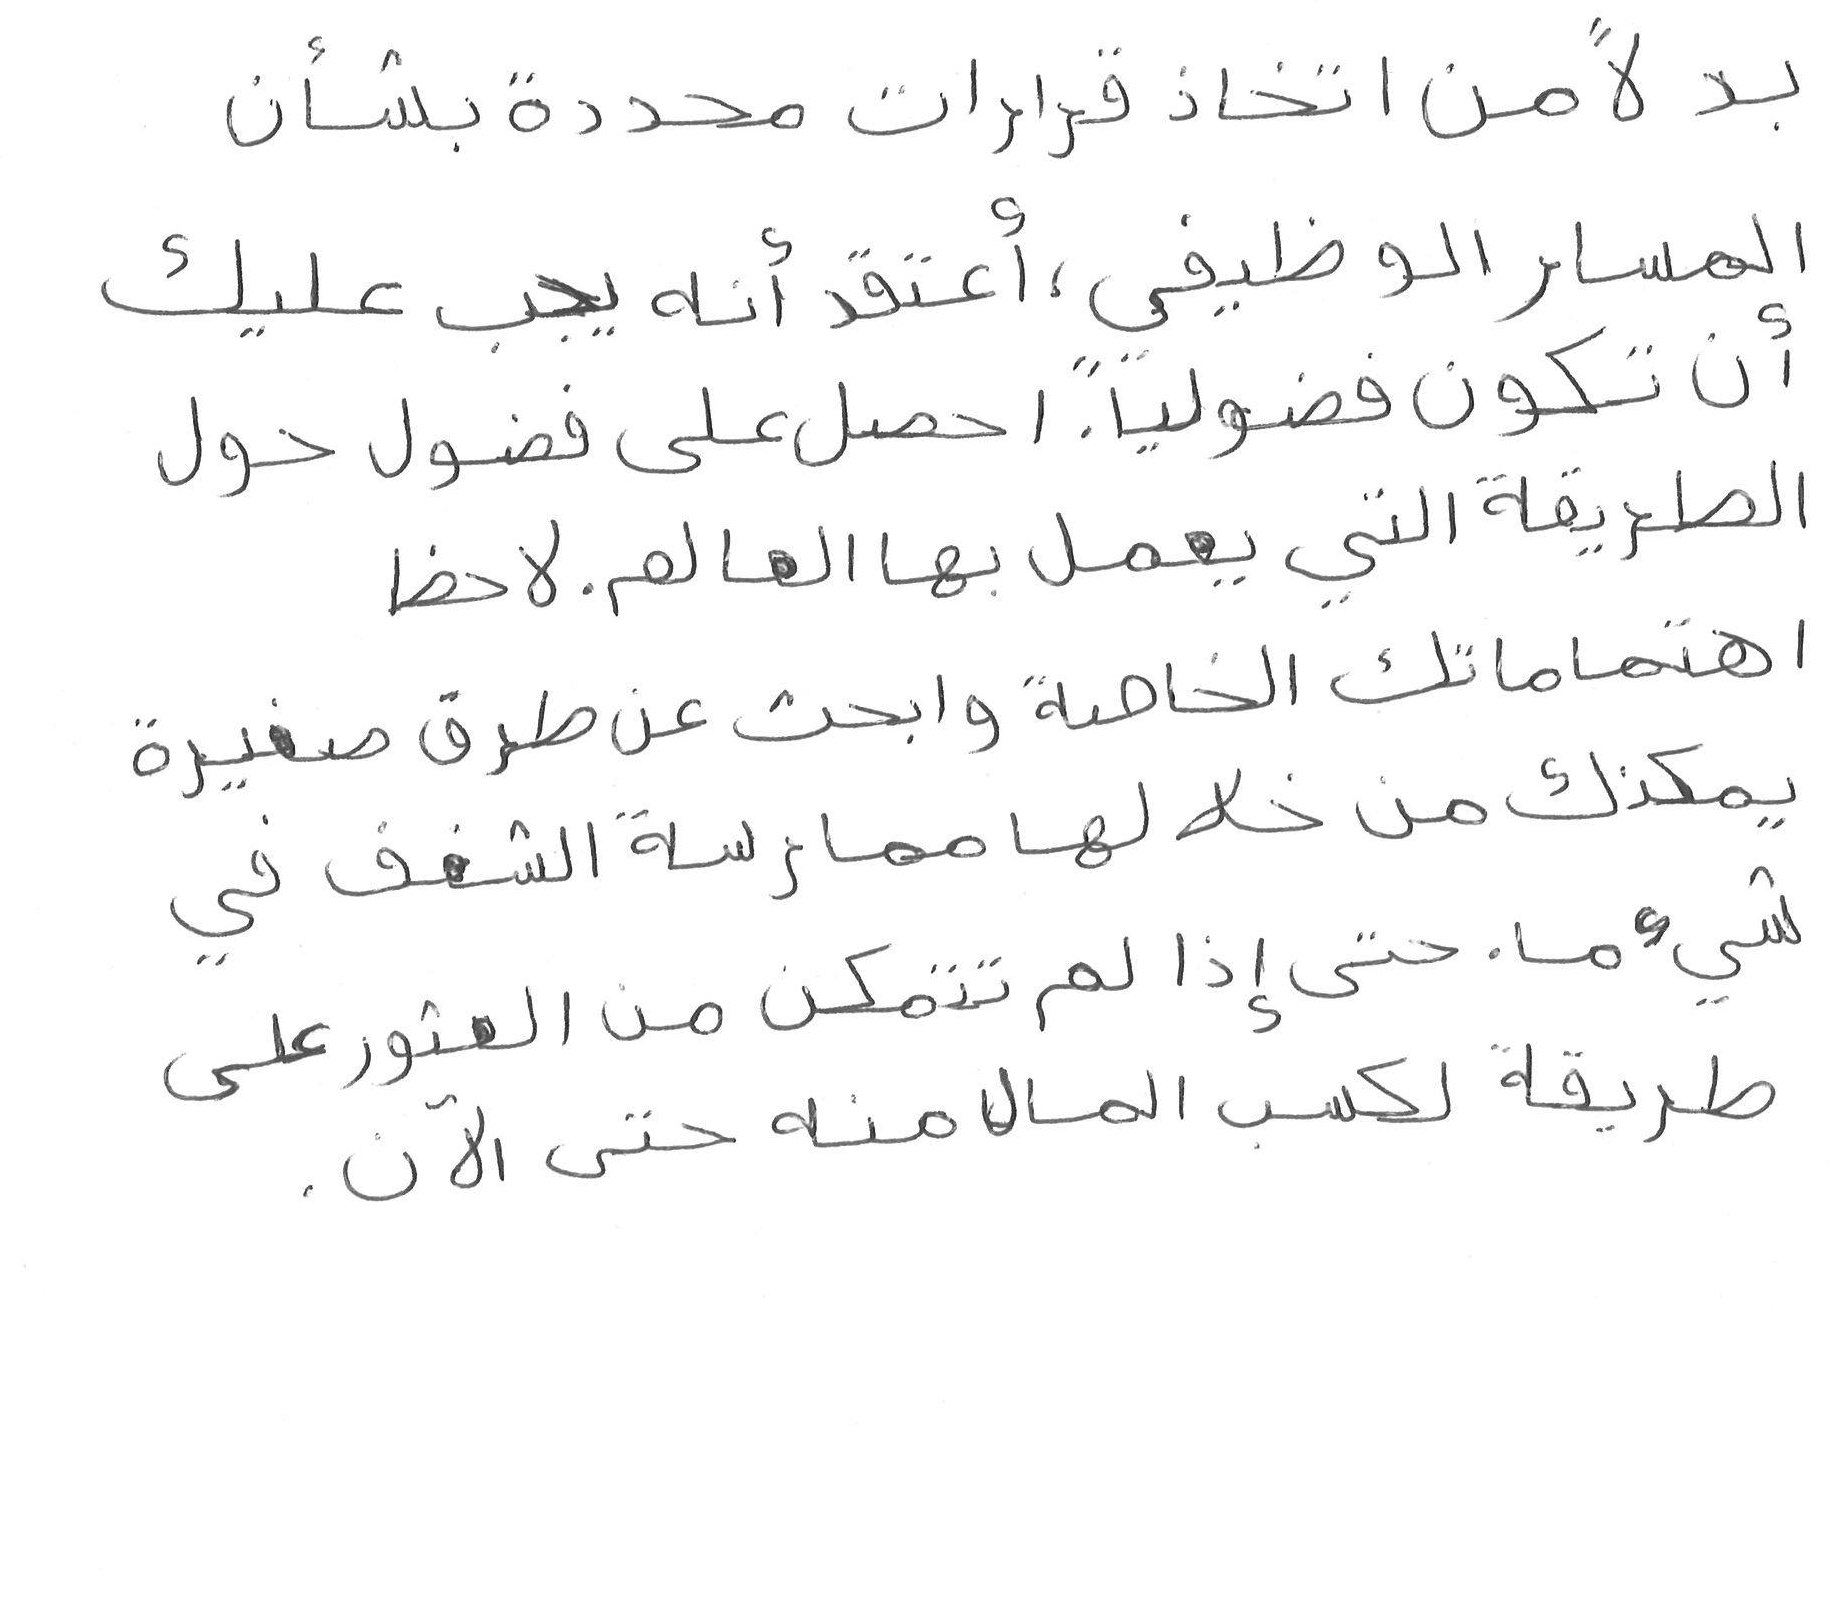 بدلاً من اتخاذ قرارات محددة بشأن
المسار الوظيفي، أعتقد أنه يجب عليك
أن تكون فضولياً. احصل على فضول حول
الطريقة التي يعمل بها العالم. لاحظ
اهتماماتك الخاصة وابحث عن طرق صغيرة
يمكنك من خلالها ممارسة الشغف في
شيء ما. حتى إذا لم تتمكن من العثور على
طريقة لكسب المال منه حتى الآن.